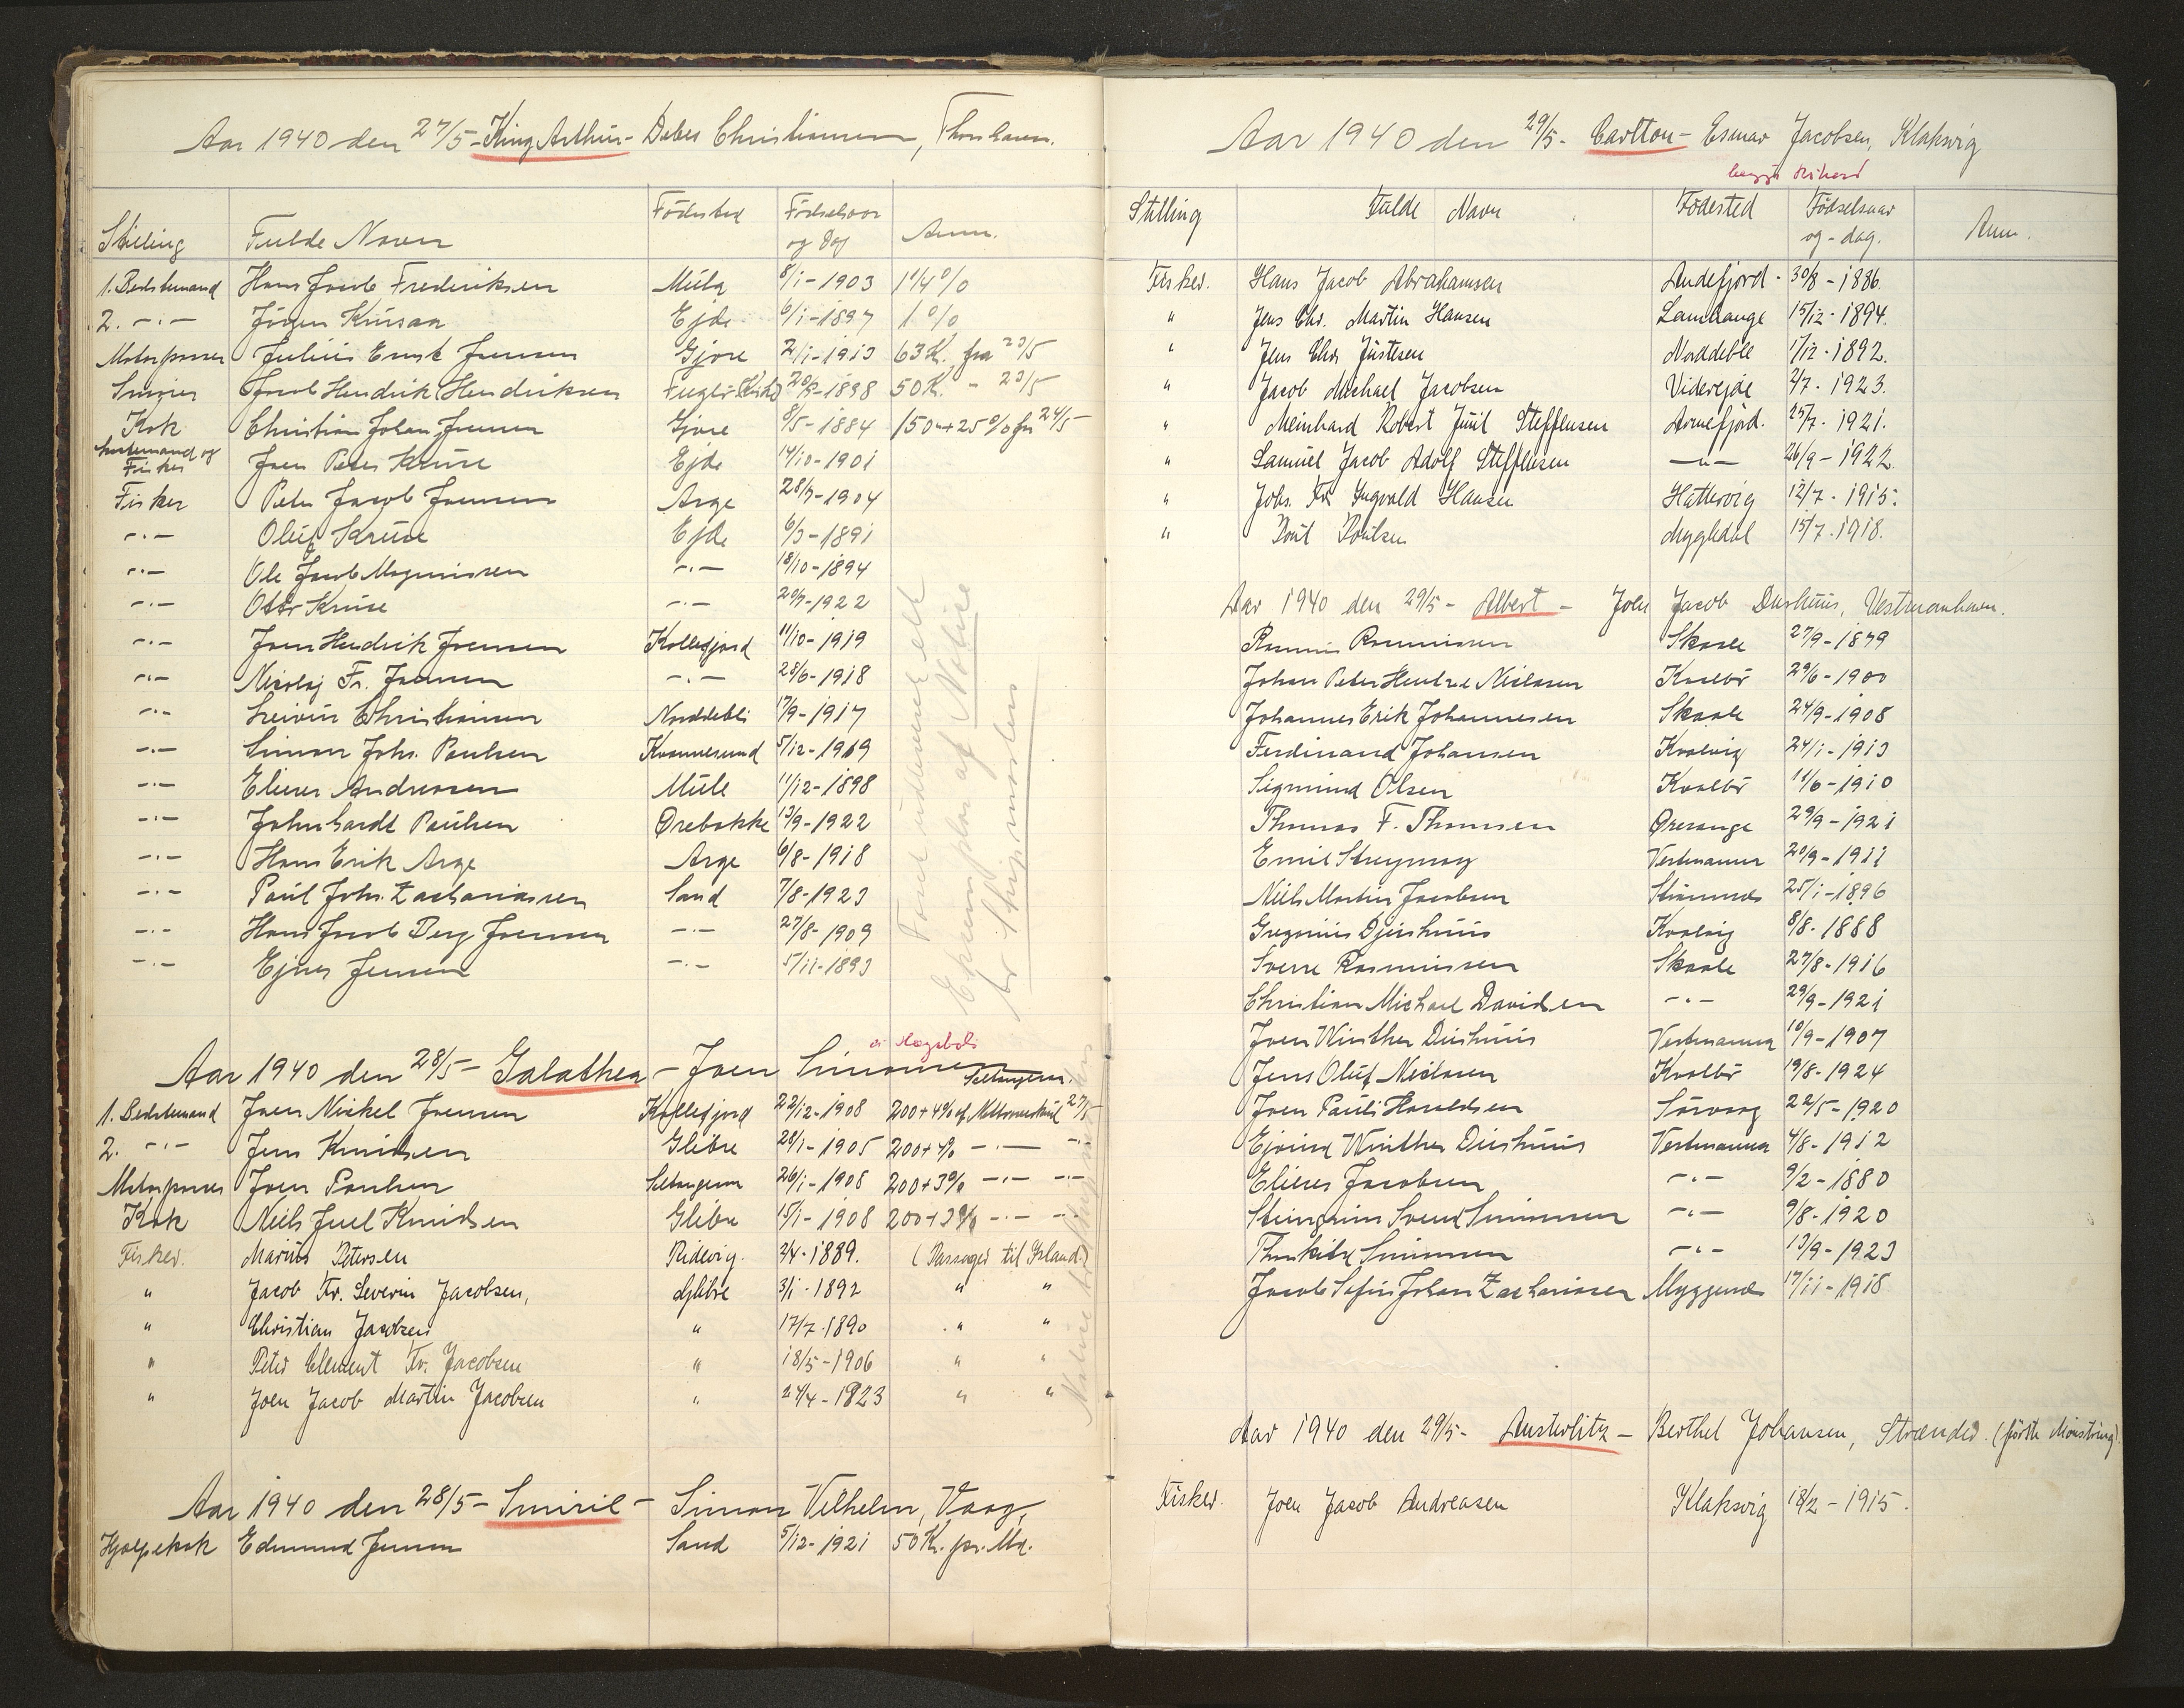 Aar 1940 den 27/5 - King Arthur - Debes Christiansen, Thorshavn.
Stilling Fulde Navn Födested Födselsaar og Dag Anm.
1. Bedstemand Hans Jacob Frederiksen Mula 8/1-1903 1 1/4 %
2. -·- Jögen Krusaa Ejde 6/1-1897 1 %
Motorpasser Julius Ernst Joensen Gjove 2/1-1913 63 K. fra 23/5
Smører Jacob Hendrik Hendriksen Fuglø (Kirke) 1898 50 K. - 23/5
Kok Christian Johan Joensen Gjove 8/5-1884 150.-+25% fra 24/5
og Fisker Joen Peter Kruse Ejde 14/10-1901
Fisker Peter Jacob Joensen Arge 28/7-1904
-·- Oluf Kruse Ejde 6/3-1891
-·- Ole Jacob Magnussen -·- 18/10-1894
-·- Otto Kruse -·- 20/7-1922
-·- Joen Hendrik Joensen Kollefjord 11/10-1919
-·- Nicolaj Fr. Joensen -·- 28/6-1918
-·- Leivur Christiansen Norddebli 17/9-1917
-·- Simon Johs. Poulsen Kvannesund 5/12-1919
-·- Elieser Andreasen Mule 11/12-1898
-·- Johnhardt Poulsen Ørebakke 13/9-1922
-·- Hans Erik Arge Arge 6/8-1918
-·- Poul Johs. Zachariassen Sand 7/8-1923
-·- Hans Jacob Berg Joensen -·- 27/8-1909
-·- Ejner Jensen -·- 5/11-1893
Eksemplar af Notice
Aar 1940 den 28/5 - Galathea - Joen Simonsen
1. Bedstemand Joen Nickel Joensen Kollefjord 22/12-1908 200+4% af 27/5
2. -·- Jens Knudsen Glibre 28/1-1905 200+4% -·- -·-
Motorpasser Joen Poulsen Seltangerne 26/1-1908 200+3% -·- -·-
Kok Niels Juel Knudsen Glibre 15/1-1908 200+3% -·- -·-
Fisker. Marius Petersen Ridevig. 2/4-1889. (Passager til Island.)
" Jacob Fr. Severin Jacobsen, Glibre 3/1-1892 " "
" Christian Jacobsen " 17/7-1890 " "
" Peter Clement Fr. Jacobsen " 18/5-1906 " "
" Joen Jacob Martin Jacobsen " 24/4-1923 " "
Aar 1940 den 28/5 - Smiril - Simon Vilhelm, Vaag,
Hjælpekok Edmund Jensen Sand 5/12-1921 50 Kr. pr. Md.
Aar 1940 den 29/5- Carlton - Esmar Jacobsen, Klaksvig
Stilling Fulde Navn Födested Födselsaar og-dag. Anm.
Fisker. Hans Jacob Abrahamsen Andefjord - 30/8-1886.
" Jens Chr. Martin Hansen Lamhauge 15/12-1894.
" Jens Chr. Justesen Norddeble 1/12-1892.
" Jacob Michael Jacobsen Viderejde 2/7-1923.
" Meinhard Robert Juul Steffensen Arnefjord. 25/7-1921.
" Samuel Jacob Adolf Steffensen -"- 26/9-1922.
" Johs. Fr. Ingvald Hansen Hattervig 12/7-1915.
" Poul Poulsen Mygledal 15/7-1918.
Aar 1940 den 29/5 - Albert - Joen Jacob Durhuus, Vestmanhavn.
Rasmus Rasmussen Skaale 27/9-1879
Johan Peter Hentze Niclasen Kvalbö 29/6-1900
Johannes Erik Johannesen Skaale 24/9-1908
Ferdinand Johansen Kvalvig 24/1-1913
Sigmund Olsen Kvalbö 11/6-1910
Thomas F. Thomsen Øreange 29/9-1921
Emil Streymoy Vestmanna 20/9-1911
Niels Martin Jacobsen Strömnes 25/1-1896
Gregorius Djurhuus Kvalvig 8/8-1888
Sverre Rasmussen Skaale 27/8-1916
Christian Michael Davidsen -"- 29/9-1921
Joen Winther Durhuus Vestmanna 10/9-1907
Jens Oluf Niclasen Kvalbö 19/8-1924
Joen Pauli Haraldsen Sörvaag 22/5-1920
Ejvind Winther Durhuus Vestmanna 4/8-1912
Elieser Jacobsen -"- 9/2-1880
Steingrim Svend Simonsen -"- 9/8-1920
Thorkild Simonsen -"- 13/9-1923
Jacob Sofus Johan Zachariasen Myggenes 17/11-1918
Aar 1940 den 29/5- Austerlitz - Berthel Johansen, Strænder. (förste Mönstring).
Fisker. Joen Jacob Andreasen Klaksvig 18/2-1915.